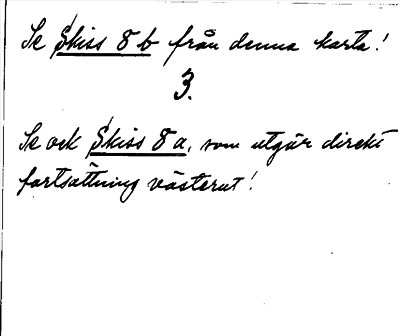 Se Skiss 8 b från denna karta!
3.
Se ock Skiss 8 a, som utgör direkt
fortsättning västerut!